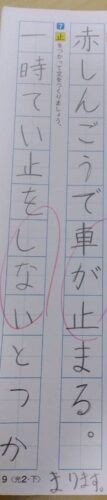 赤しんごうで車が止まる。
7 止をつかって文をつくりましょう。
一時てい止をしないとつか
まります。
9〈光2・下〉